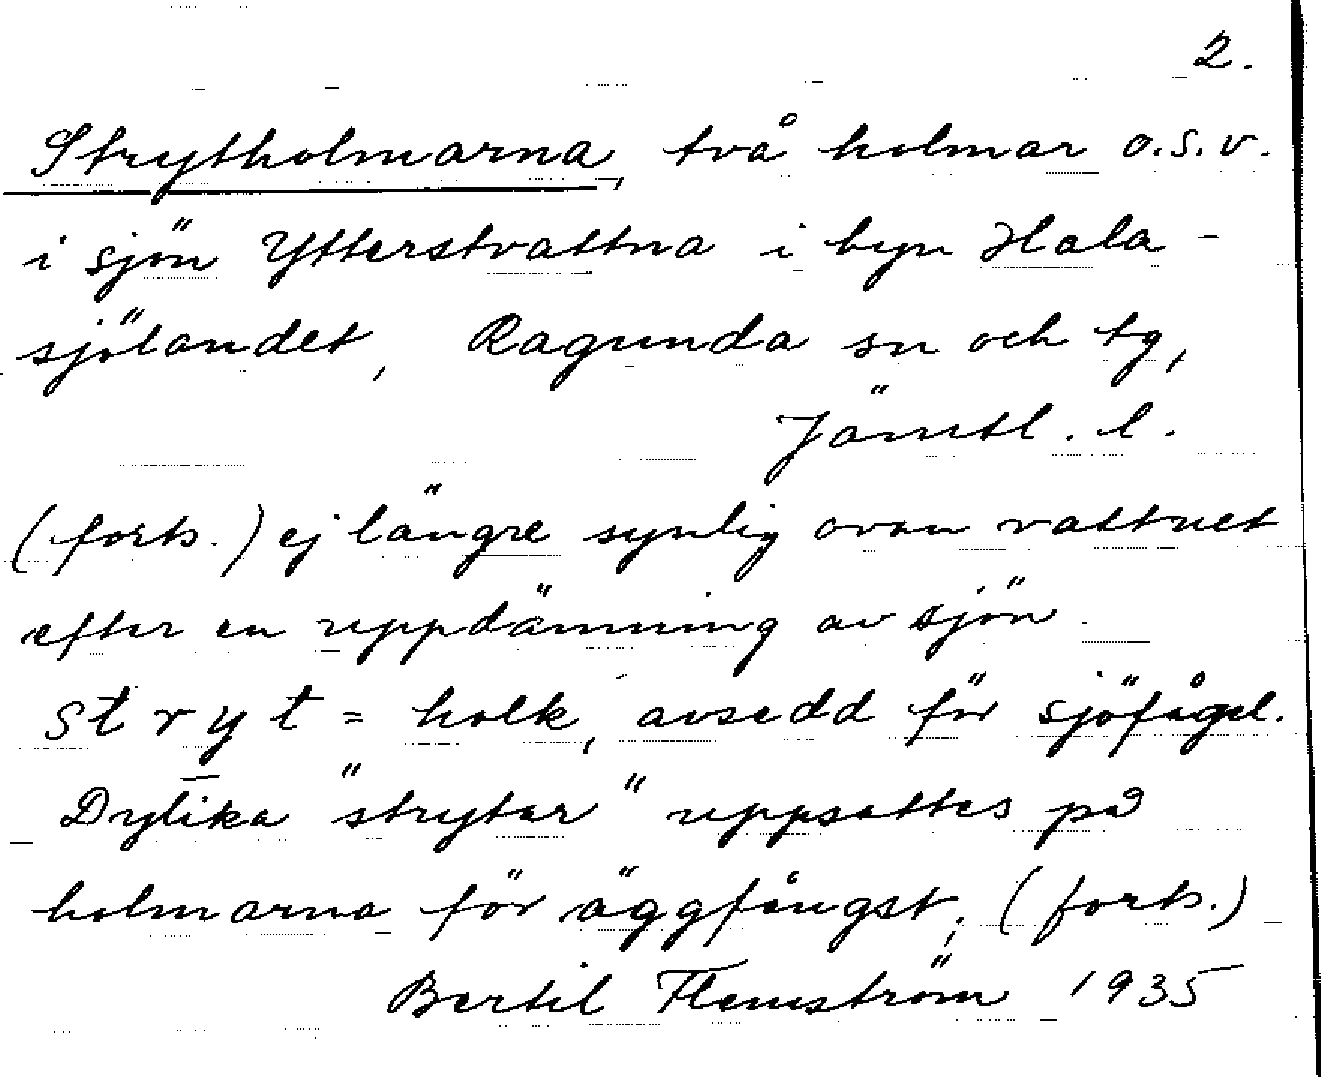 2.
Strytholmarna, två holmar o.s.v.
i sjön Ytterstvattna i byn Hala-
sjölandet, Ragunda sn och tg,
Jämtl. l.
(forts.) ej längre synlig ovan vattnet
efter en uppdämning av sjön.
stryt = holk, avsedd för sjöfågel.
Dylika "strytar" uppsattes på
holmarna för äggfångst; (forts.)
Bertil Flemström 1935